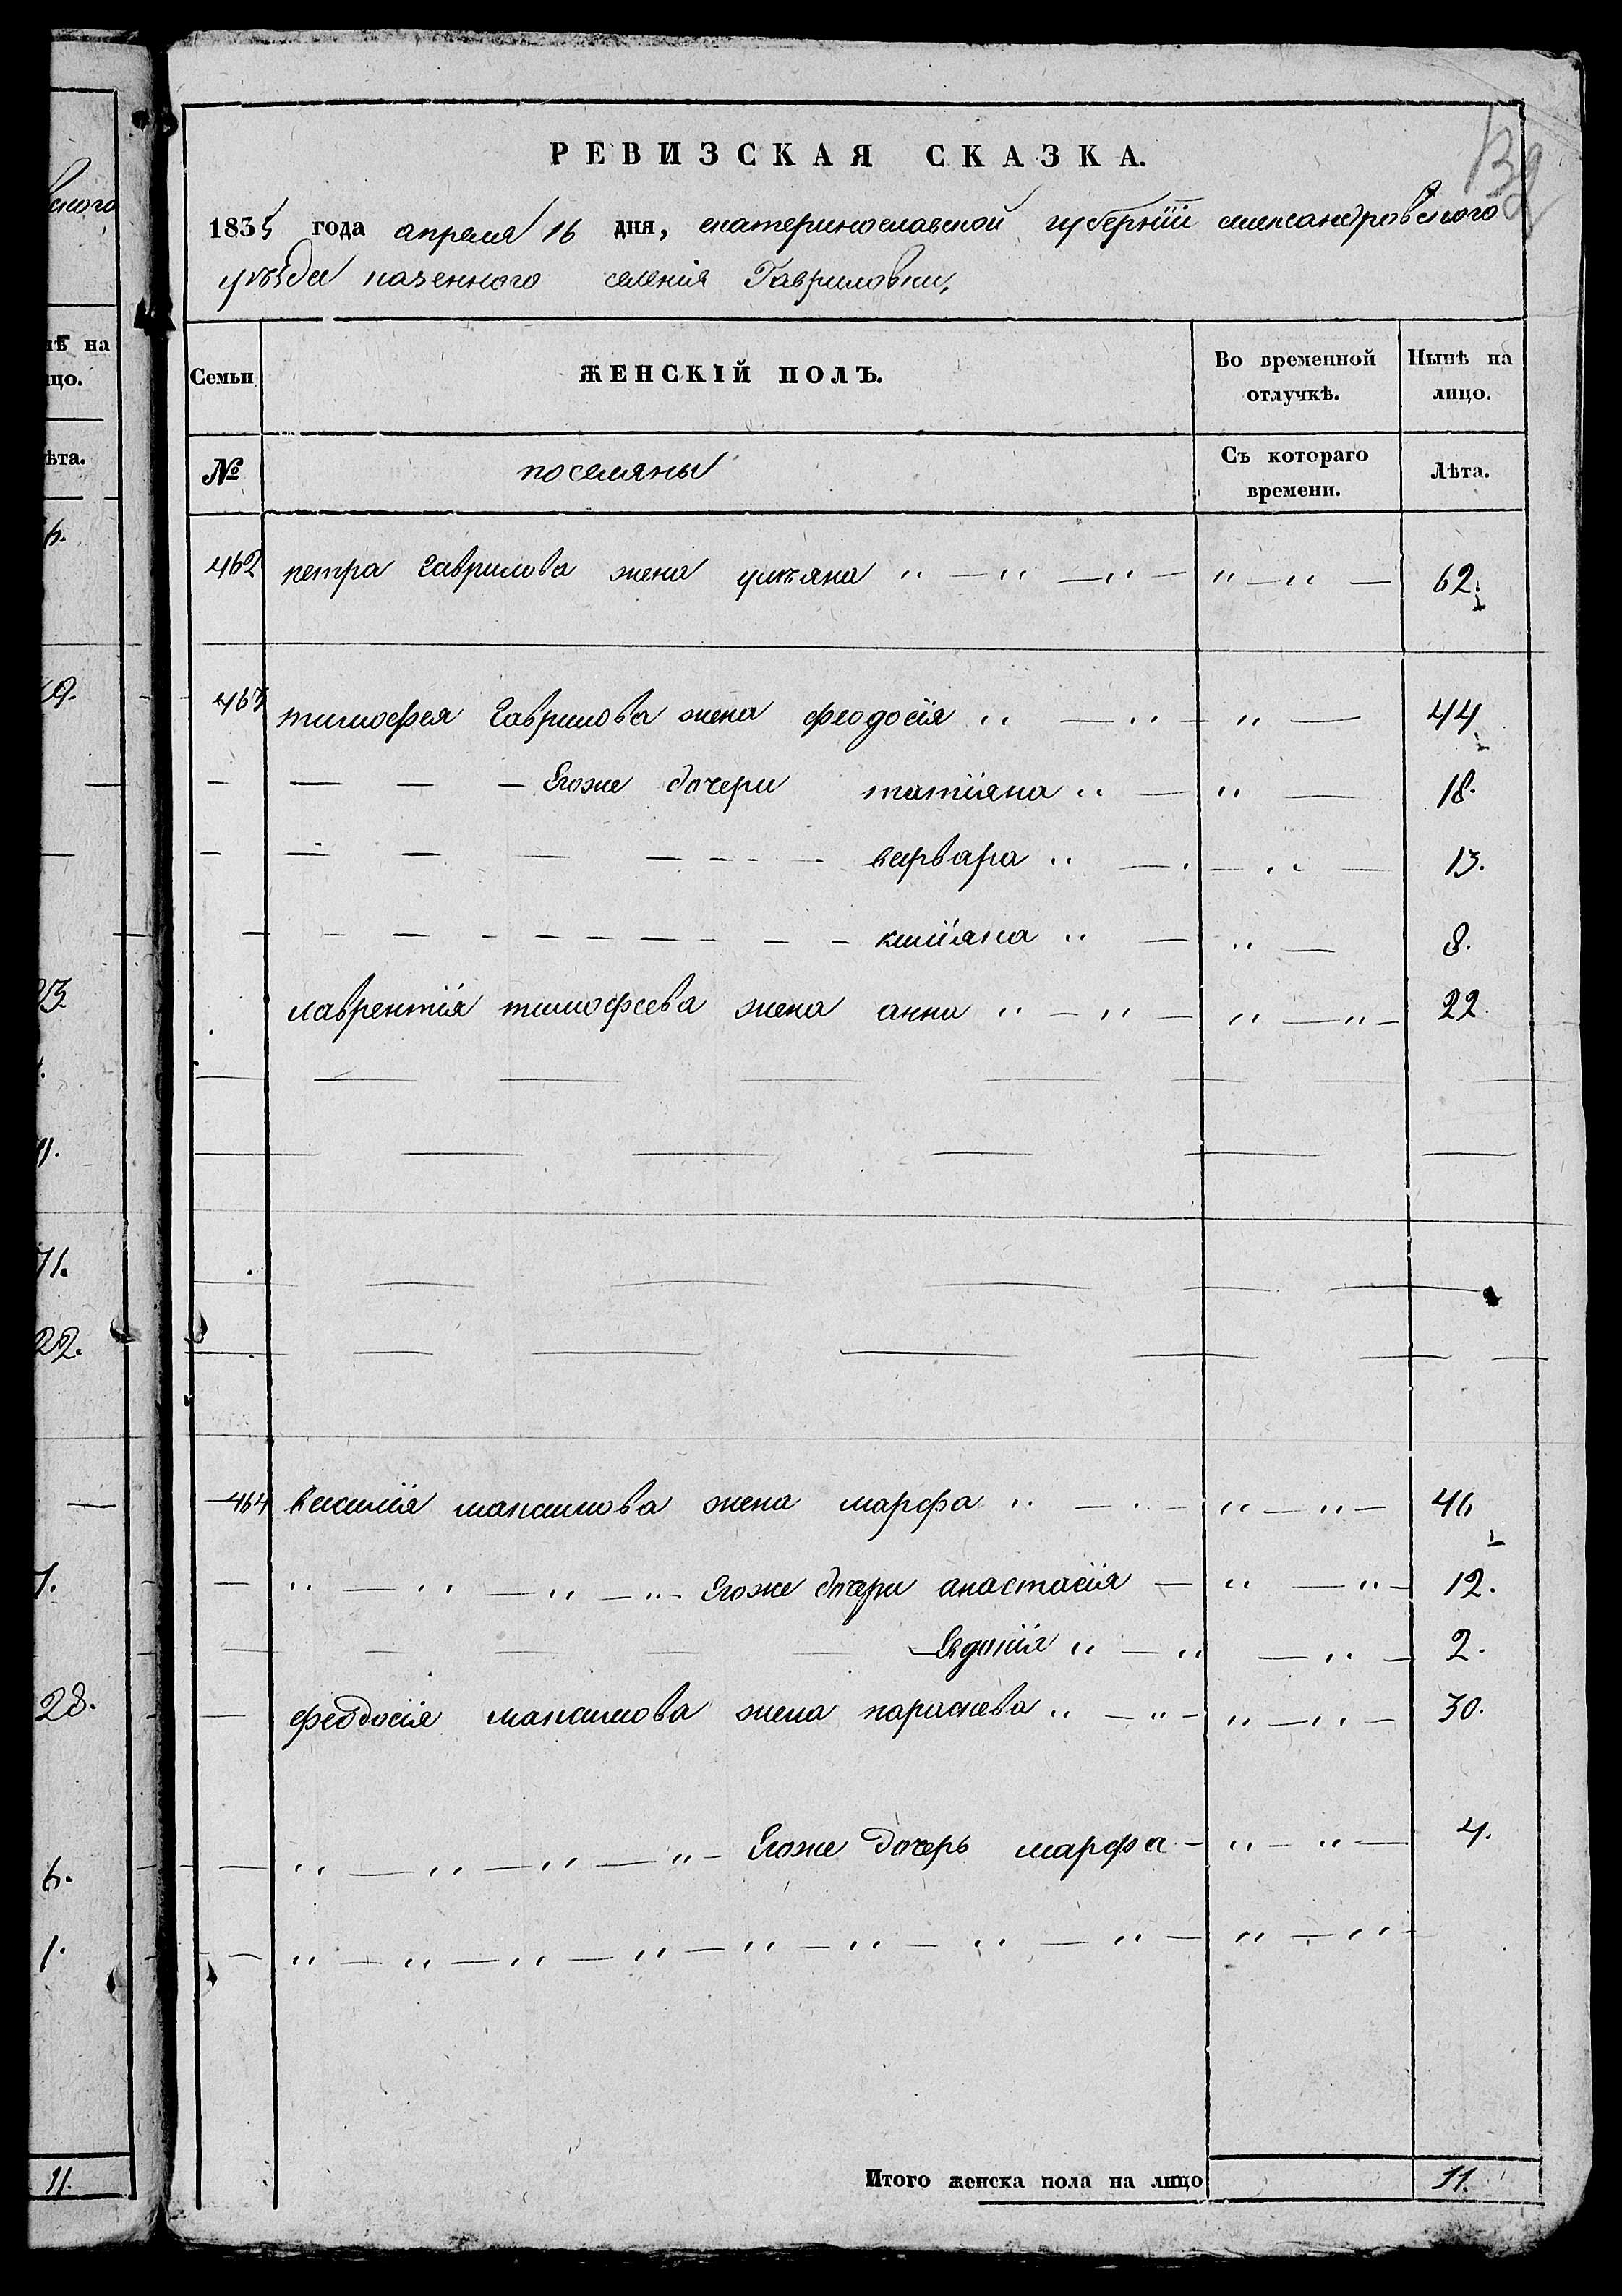 132
РЕВИЗСКАЯ СКАЗКА.
1835 года апреля 16 дня, екатеринославской губерніи александровского
уѣзда казенного селенія Гавриловки,
Семьи ЖЕНСКІЙ ПОЛЪ. Во временной отлучкѣ. Нынѣ на лицо.
№ поселяны Съ котораго времени. Лѣта.
462 петра гаврилова жена улияна 62.
463 тимофея гаврилова жена феодосія 44
Егоже дочери татіяна 18.
варвара 13.
киліяна 8.
лаврентія тимофеева жена анна 22.
464 василія максимова жена марфа 46
Егоже дочери анастасія 12.
2.
феодосія максимова жена параскева 30.
Егоже дочерь марфа 4.
Итого женска пола на лицо 11.
ского
нѣ на
ицо.
ѣта.
23
71.
22.
28.
6.
1.
11.